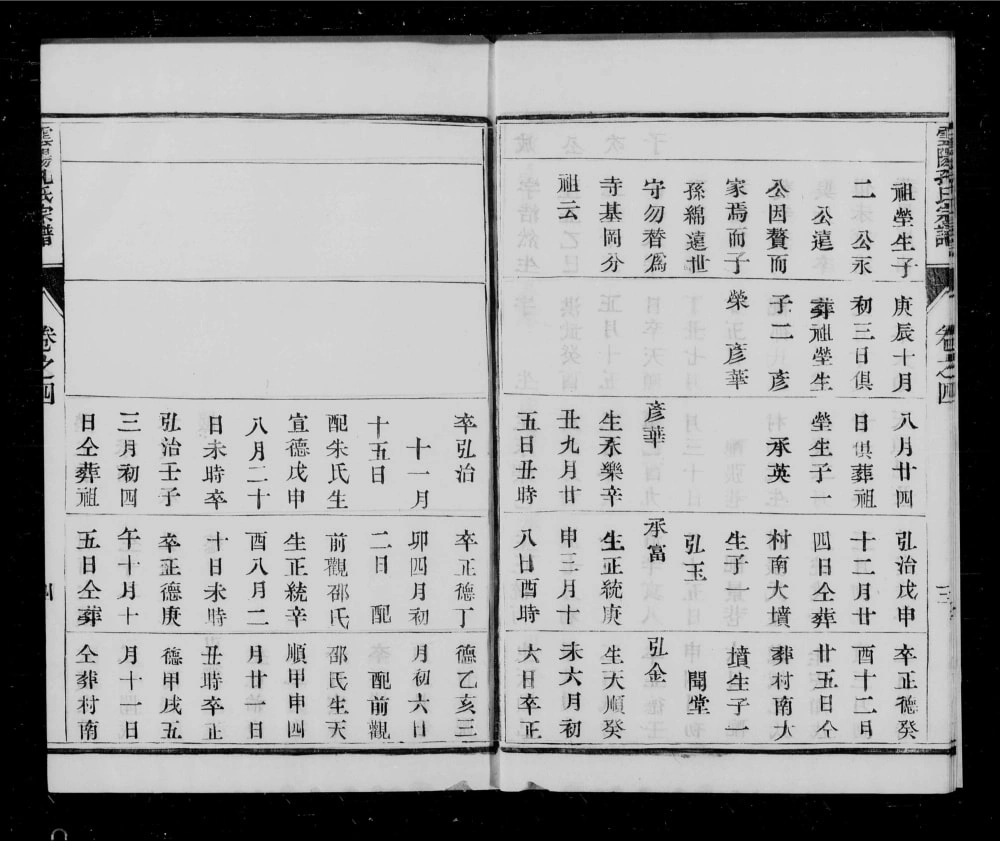 雲陽孔氏宗譜
卷之四
三
祖塋生子
二 公永
公遠
公因贅而
家焉而子
孫綿遠世
守勿替為
寺基岡分
祖云
庚辰十月
初三日俱
葬祖塋生
子二 彥
榮 彥華
八月廿四
日俱葬祖
塋生子一
承英
彥華
生永樂辛
丑九月廿
五日丑時
卒弘治
十一月
十五日
配朱氏生
宣德戊申
八月二十
日未時卒
弘治壬子
三月初四
日仝葬祖
弘治戊申
十二月廿
四日仝葬
村南大墳
生子一
弘玉
承富
生正統庚
申三月十
八日酉時
卒正德丁
卯四月初
二日 配
前觀邵氏
生正統辛
酉八月二
十日未時
卒正德庚
午十月十
五日仝葬
卒正德癸
酉十二月
廿五日仝
葬村南大
墳生子一
聞堂
弘金
生天順癸
未六月初
六日卒正
德乙亥三
月初六日
配前觀
邵氏生天
順甲申四
月廿一日
丑時卒正
德甲戌五
月十一日
仝葬村南
雲陽孔氏宗譜
卷之四
四